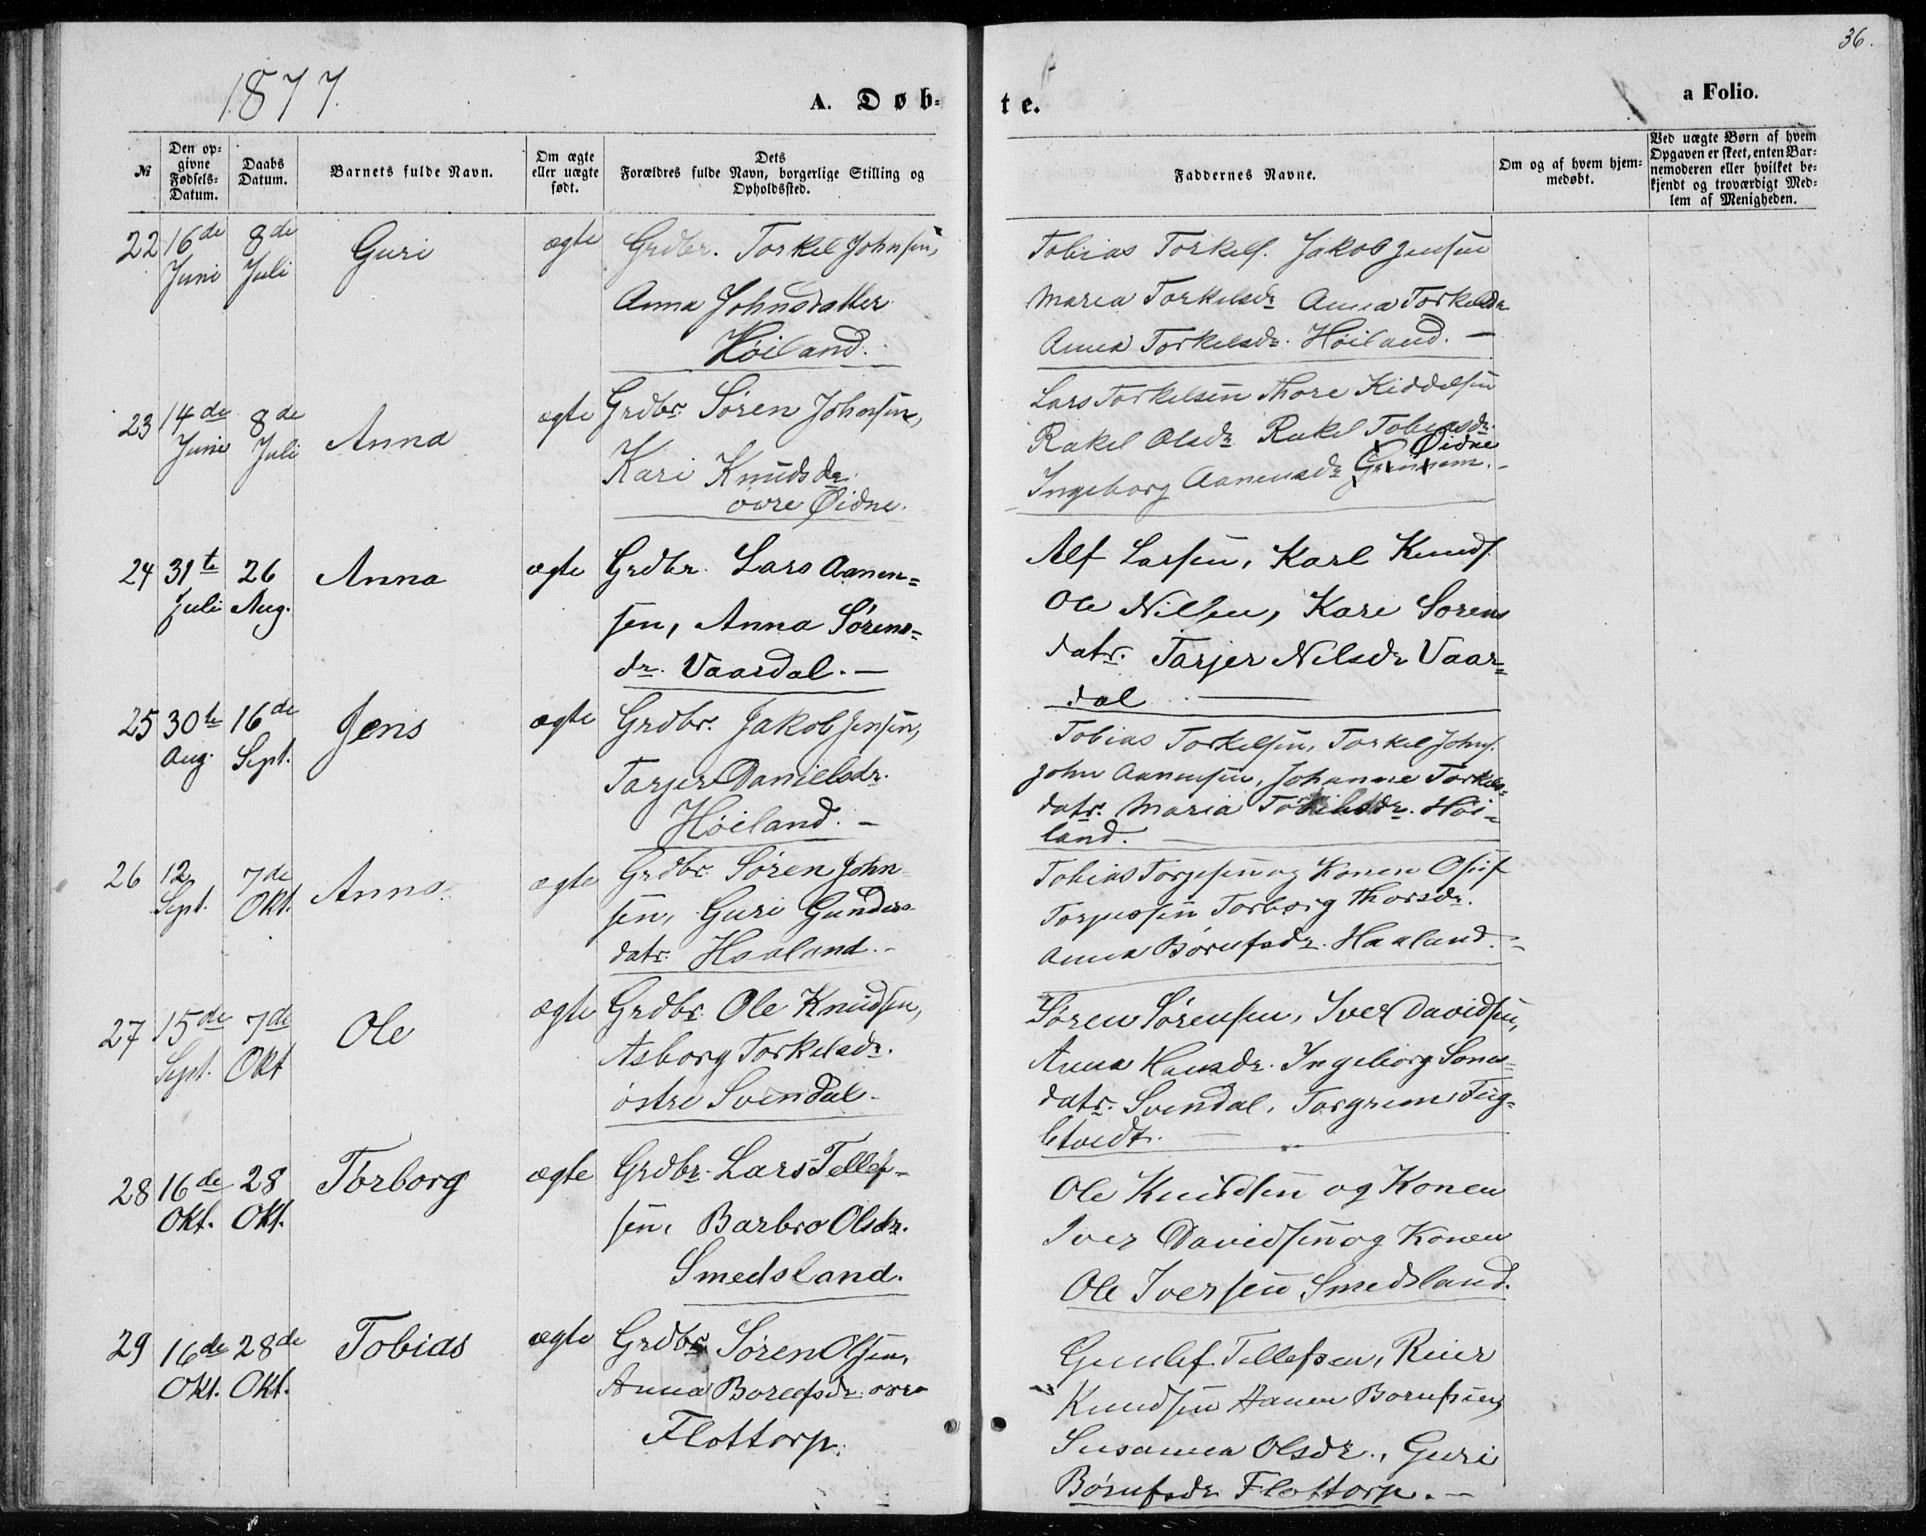 36.
1877.
A. Døb-
te.
a Folio.
№
Den op-
givne
Fødsels-
Datum.
Daabs
Datum.
Barnets fulde Navn.
Om ægte
eller uægte
født.
Dets
Forældres fulde Navn, borgerlige Stilling og
Opholdssted.
Faddernes Navne.
Om og af hvem hjem-
medøbt.
Ved uægte Børn af hvem
Opgaven er skeet, enten Bar-
nemoderen eller hvilket be-
kjendt og troværdigt Med-
lem af Menigheden.
22 16de Juni 8de Juli Guri ægte Grdbr. Torkel Johnsen,
Anna Johnsdatter
Høiland.
Tobias Torkels. Jakob Jensen
Maria Torkelsdr Anna Torkelsdr
Anna Torkelsdr. Høiland. —
23 14de Juni 8de Juli Anna ægte Grdbr. Søren Johnsen,
Kari Knudsdr.
øvre Øidne.
Lars Torkelsen Thore Kiddelsen
Rakel Olsdr Rakel Tobiasdr.
Øidne
Ingeborg Aanensdr
24 31te Juli 26 Aug. Anna ægte Grdbr. Lars Aanen-
sen, Anna Sørens-
dr. Vaardal. —
Alf Larsen, Karl Knuds.
Ole Nilsen, Kari Sorens
datr. Tarjer Nilsdr Vaar-
dal —
25 30te Aug. 16de Sept. Jens ægte Grdbr. Jakob Jensen,
Tarjer Danielsdr.
Høiland. —
Tobias Torkelsen, Torkel Johns.
John Aanensen, Johanne Torkels-
datr. Maria Torkelsdr. Høi-
land. —
26 12 Sept. 7de Okt. Anna. ægte Grdbr. Søren John
sen, Guri Gunders
datr. Haaland. -
Tobias Torgesen og Konen Osuf
Torjussen Torborg Thorsdr.
Anna Børufsdr. Haaland. -
27 15de Sept. 7de Okt Ole ægte Grdbr. Ole Knudsen,
Asborg Torkelsdr.
østre Svendal.
Søren Sørensen, Iver Davidsen,
Anna Hansdr. Ingeborg Sorens-
datr. Svendal, Torgrim Fug-
letvedt. —
28 16de Okt. 28 Okt. Torborg ægte Grdbr. Lars Tellef-
sen, Barbro Olsdr.
Smedsland.
Ole Knudsen og Konen
Iver Davidsen og Konen
Ole Iversen Smedsland.
29 16de Okt. 28de Okt. Tobias ægte Grdbr. Søren Olsen,
Anna Borufsdr. øvre
Flottorp.
Gunlef Tellefsen, Reier
Knudsen Aanen Borufsen
Susanna Olsdr., Guri
Børufsdr Flottorp. —